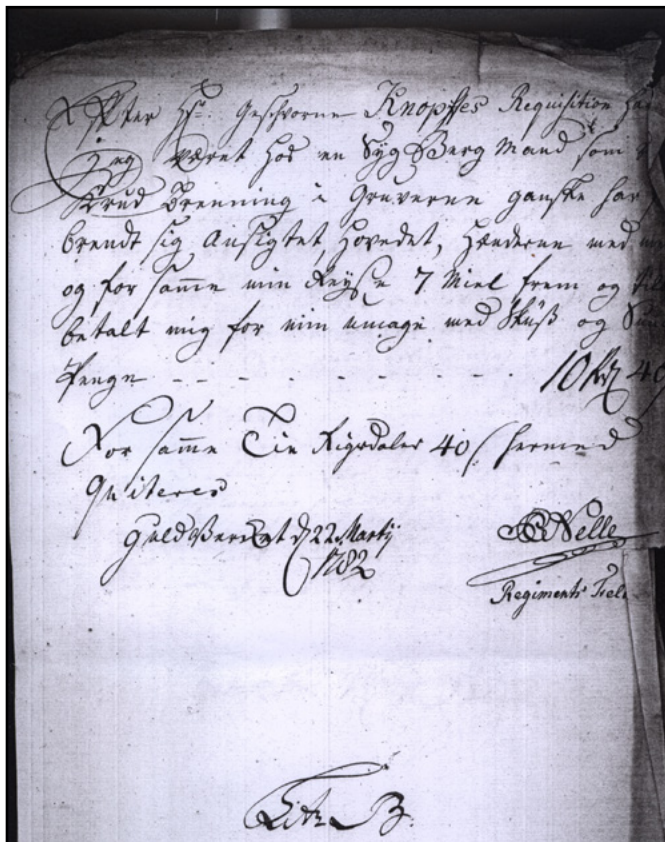 Efter Hr. Geschworne Knophes Requisition har
Jeg været hos en Syg Berg Mand som
Krud Brenning i Gruverne ganske har
brendt sig Ansigtet, Hovedet, Hænderne med
og for samme min Reyse 7 Miel frem og til
betalt mig for min umage med Sküß og
Penge - - - - - - - - 10 Rdr 40
For samme Tie Rigsdaler 40 ß hermed
Qviteres
Guld Verket d 22 Martij
1782
Nelle
Regiments Feld
Litr B.